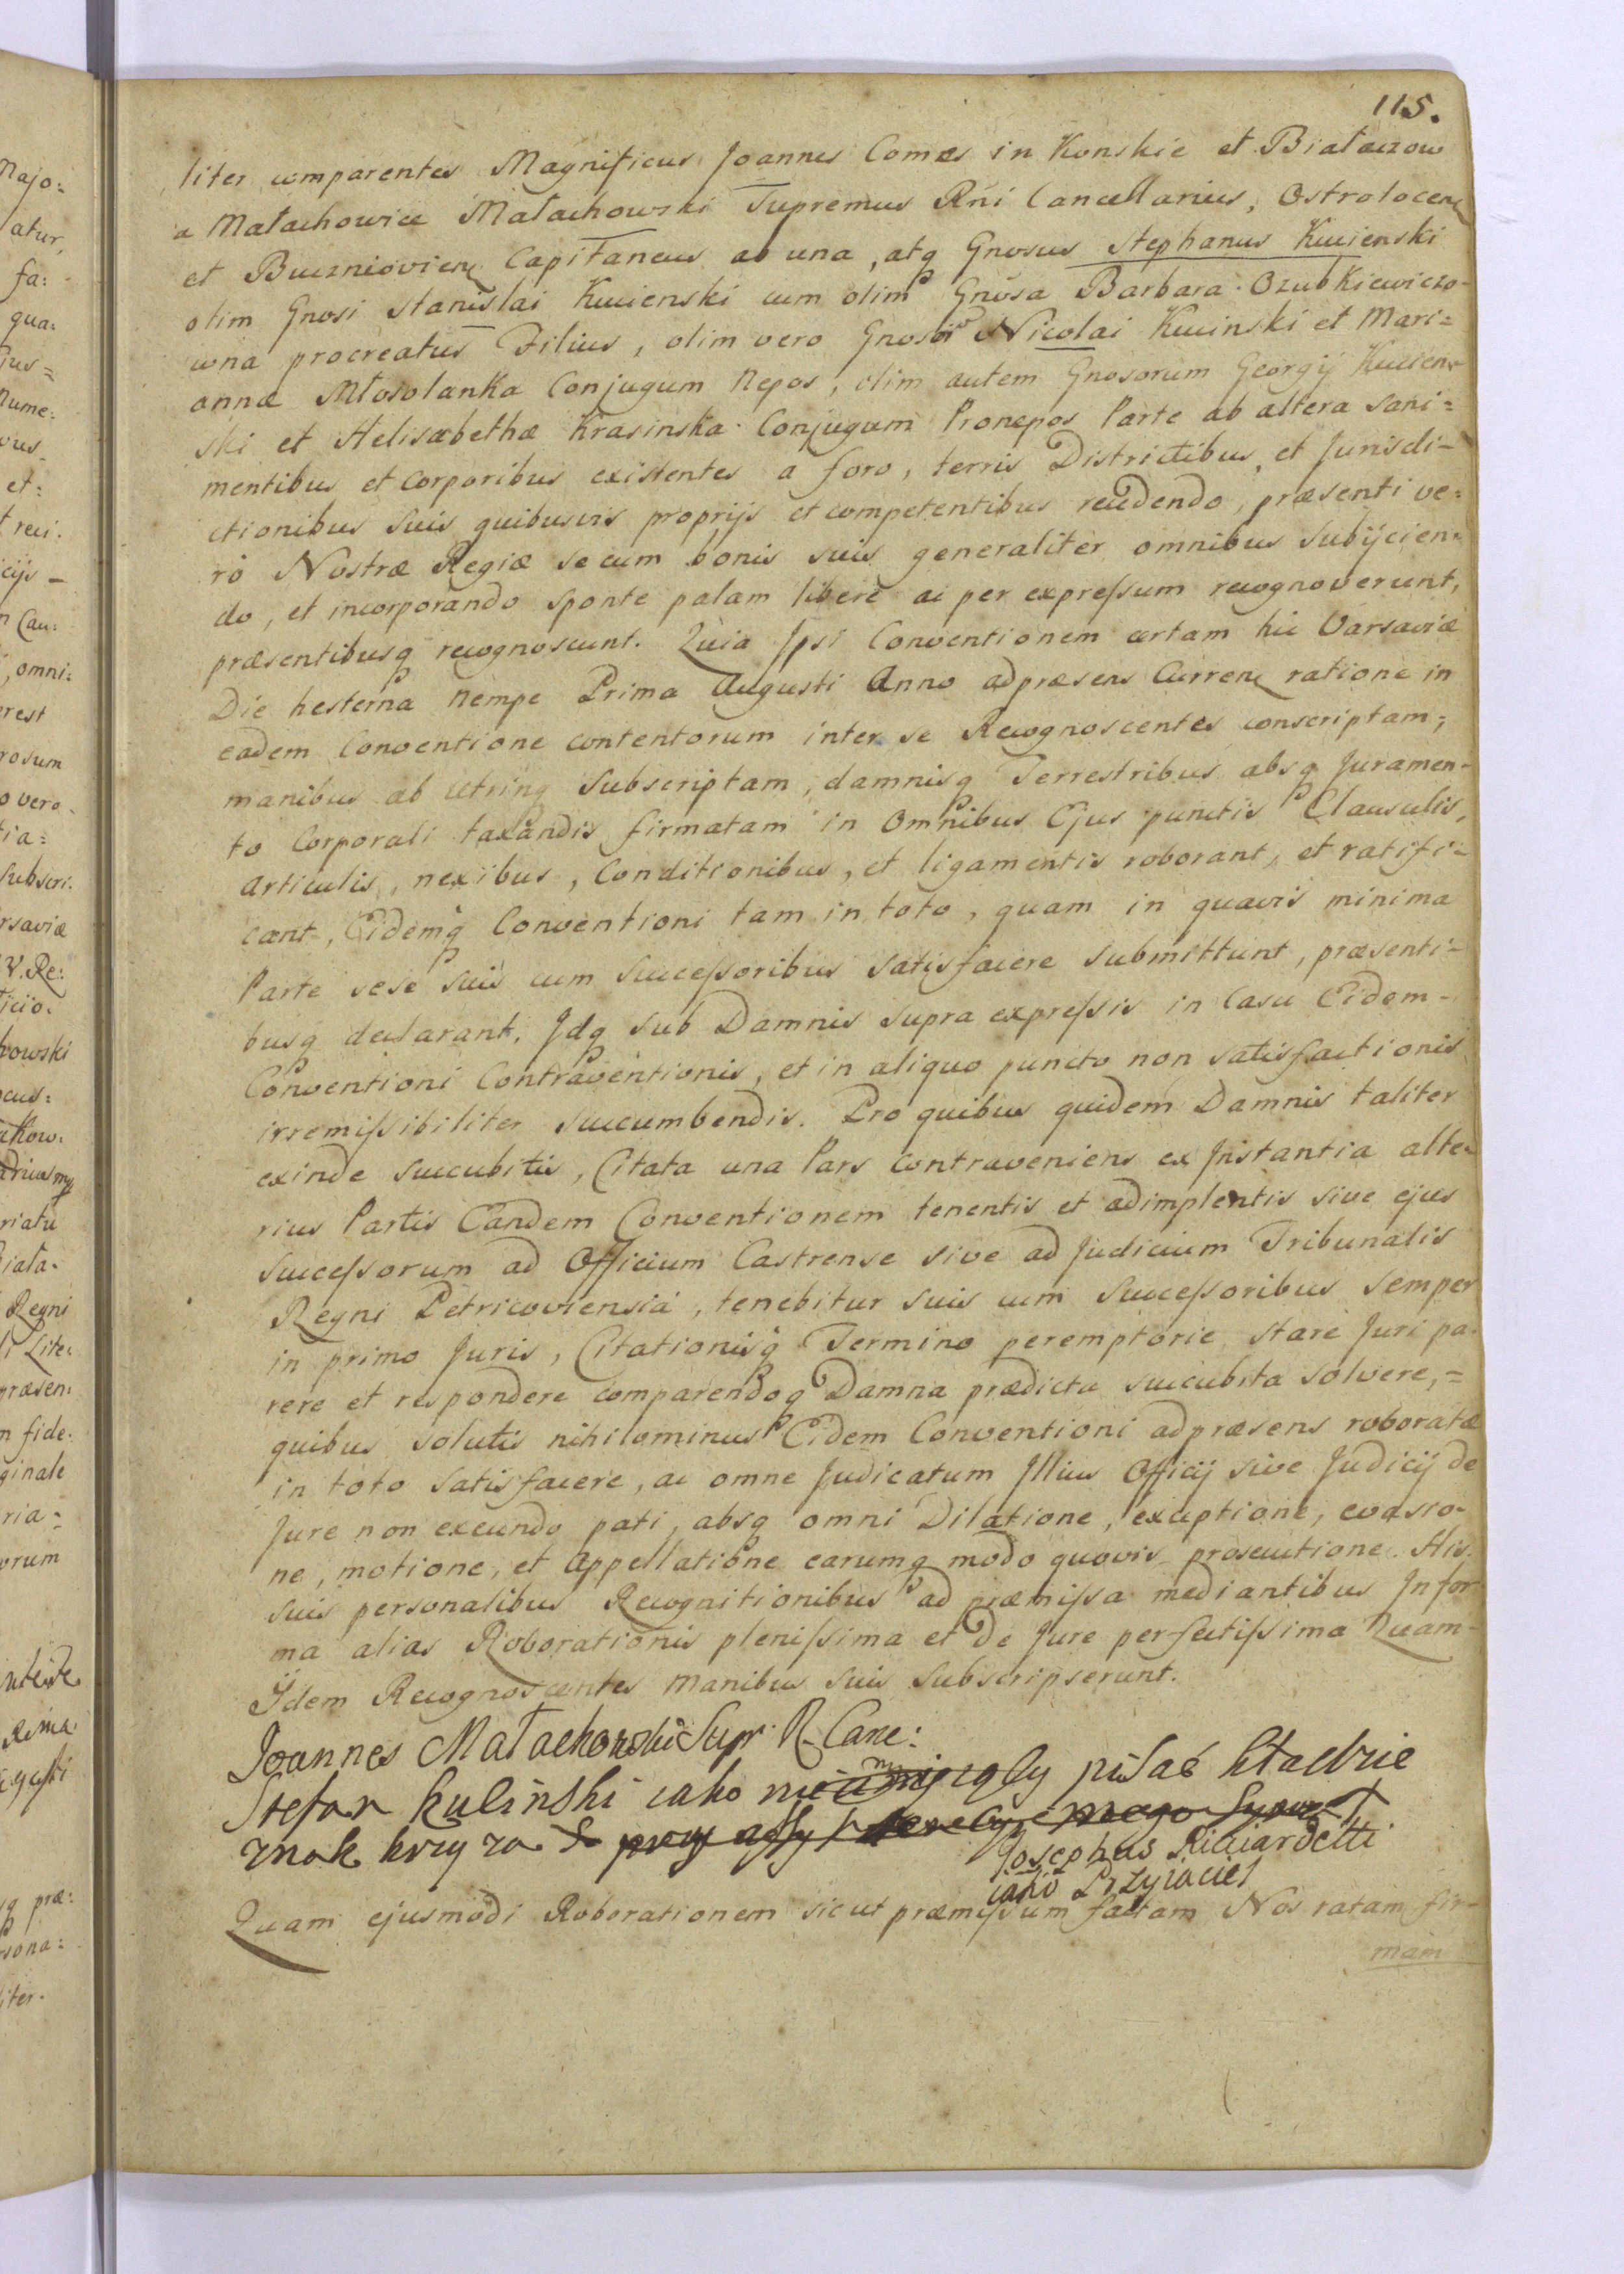 115.
liter comparentes Magnificus Joannes Comes in Konskie et Białaczow
a Małachowice Małachowski Supremus Rni Cancellarius, Ostrołocen
et Buczniovien Capitaneus ab una, atq Gnosus Stephanus Kucienski
olim Gnosi Stanislai Kucienski cum olim Gnosa Barbara Ozubkiewiczo-
wna procreatus Filius, olim vero Gnosor Nicolai Kucinski et Mari=
annæ Młosolanka Conjugum Nepos, olim autem Gnosorum Georgij Kucien-
ski et Helisæbethæ Krasinska Conjugum Pronepos Parte ab altera Sani=
mentibus et Corporibus existentes a foro, terris Districtibus, et Jurisdi-
ctionibus suis quibusvis proprijs et competentibus recedendo, præsenti ve=
rò Nostræ Regiæ se cum bonis suis generaliter omnibus subijcien=
do, et incorporando sponte palam libere ac per expressum recognoverunt,
præsentibusq recognoscunt. Quia Ipsi Conventionem certam hic Varsaviæ
Die hesterna nempe Prima Augusti Anno adpræsens Curren ratione in
eadem Conventione contentorum inter se Recognoscentes conscriptam,
manibus ab utrinq subscriptam, damnisq Terrestribus absq Juramen-
to Corporali taxandis firmatam in Omnibus Ejus punctis Clausulis,
Articulis, nexibus, Conditionibus, et ligamentis roborant, et ratifi-
cant, Eidemq Conventioni tam in toto, quam in quavis minima
Parte sese suis cum Successoribus satisfacere submittunt, præsenti-
busq declarant. Idq sub Damnis supra expressis in Casu Eidem-
Conventioni Contraventionis, et in aliquo puncto non satisfactionis
irremissibiliter succumbendis. Pro quibus quidem Damnis taliter
exinde succubitis, Citata una Pars contraveniens ex Instantia alte-
rius Partis Eandem Conventionem tenentis et adimplentis sive ejus
Successorum ad Officium Castrense sive ad Judicium Tribunalis
Regni Petricoviensia, tenebitur suis cum Successoribus semper
in primo Juris, Citationisq Termino peremptorie stare Juri pa-
rere et respondere comparendoq Damna prædicta succubita solvere,=
quibus solutis nihilominus Eidem Conventioni adpræsens roboratæ
in toto satisfacere, ac omne Judicatum Illius Officij sive Judicij de
Jure non exeundo pati, absq omni Dilatione, exceptione, evasio-
ne, motione, et Appellatione earumq modo quovis prosecutione. His
suis personalibus Recognitionibus ad præmissa mediantibus In for
ma alias Roborationis plenissima et De Jure perfectissima Quam-
Ijdem Recognoscentes manibus suis subscripserunt.
Joannes Małachowski Supr. R. Canc:
Stefan Kulinski iako nie umiejący pisać kładzie
znak krzyża
Josephus Ricciardetti
iako Przyiaciel
Quam ejusmodi Roborationem sicut præmissum factam Nos ratam fir-
mam